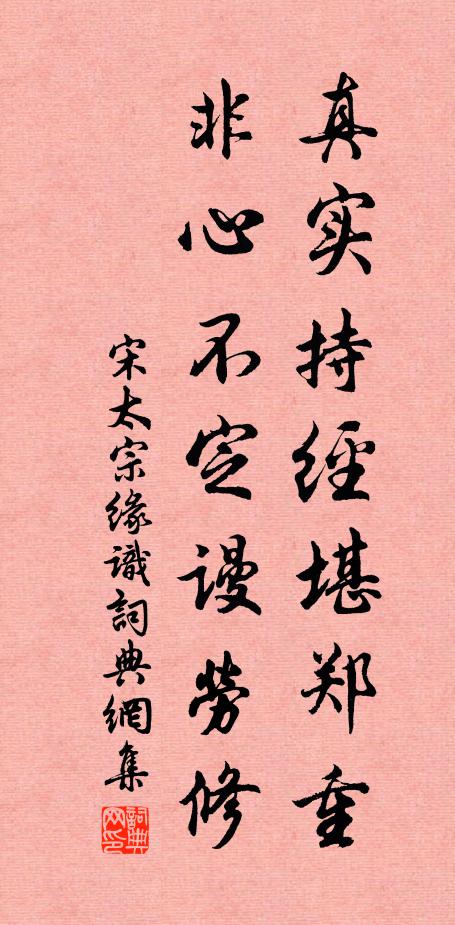 真实持經堪郑重
非心不定謾勞修
宋太宗缘識詞典網集
詞典
网印